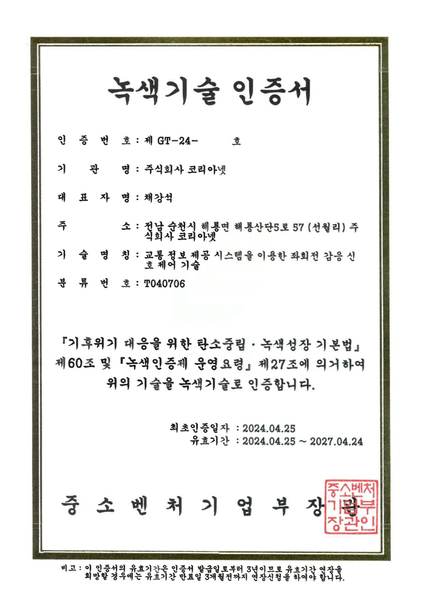 녹색기술 인증서
인 증 번 호 : 제 GT-24- 호
기 관 명 : 주식회사 코리아넷
대 표 자 명 : 채강석
주 소 : 전남 순천시 해룡면 해룡산단5로 57 (선월리) 주
식회사 코리아넷
기 술 명 칭 : 교통 정보 제공 시스템을 이용한 좌회전 감응 신
호 제어 기술
분 류 번 호 : T040706
『기후위기 대응을 위한 탄소중립·녹색성장 기본법』
제60조 및 『녹색인증제 운영요령』 제27조에 의거하여
위의 기술을 녹색기술로 인증합니다.
최초인증일자 : 2024.04.25
유효기간 : 2024.04.25 ~ 2027.04.24
중 소 벤 처 기 업 부 장 관
중소벤처
기업부
장관인
비고 : 이 인증서의 유효기간은 인증서 발급일로부터 3년이므로 유효기간 연장을
희망할 경우에는 유효기간 만료일 3개월전까지 연장신청을 하여야 합니다.